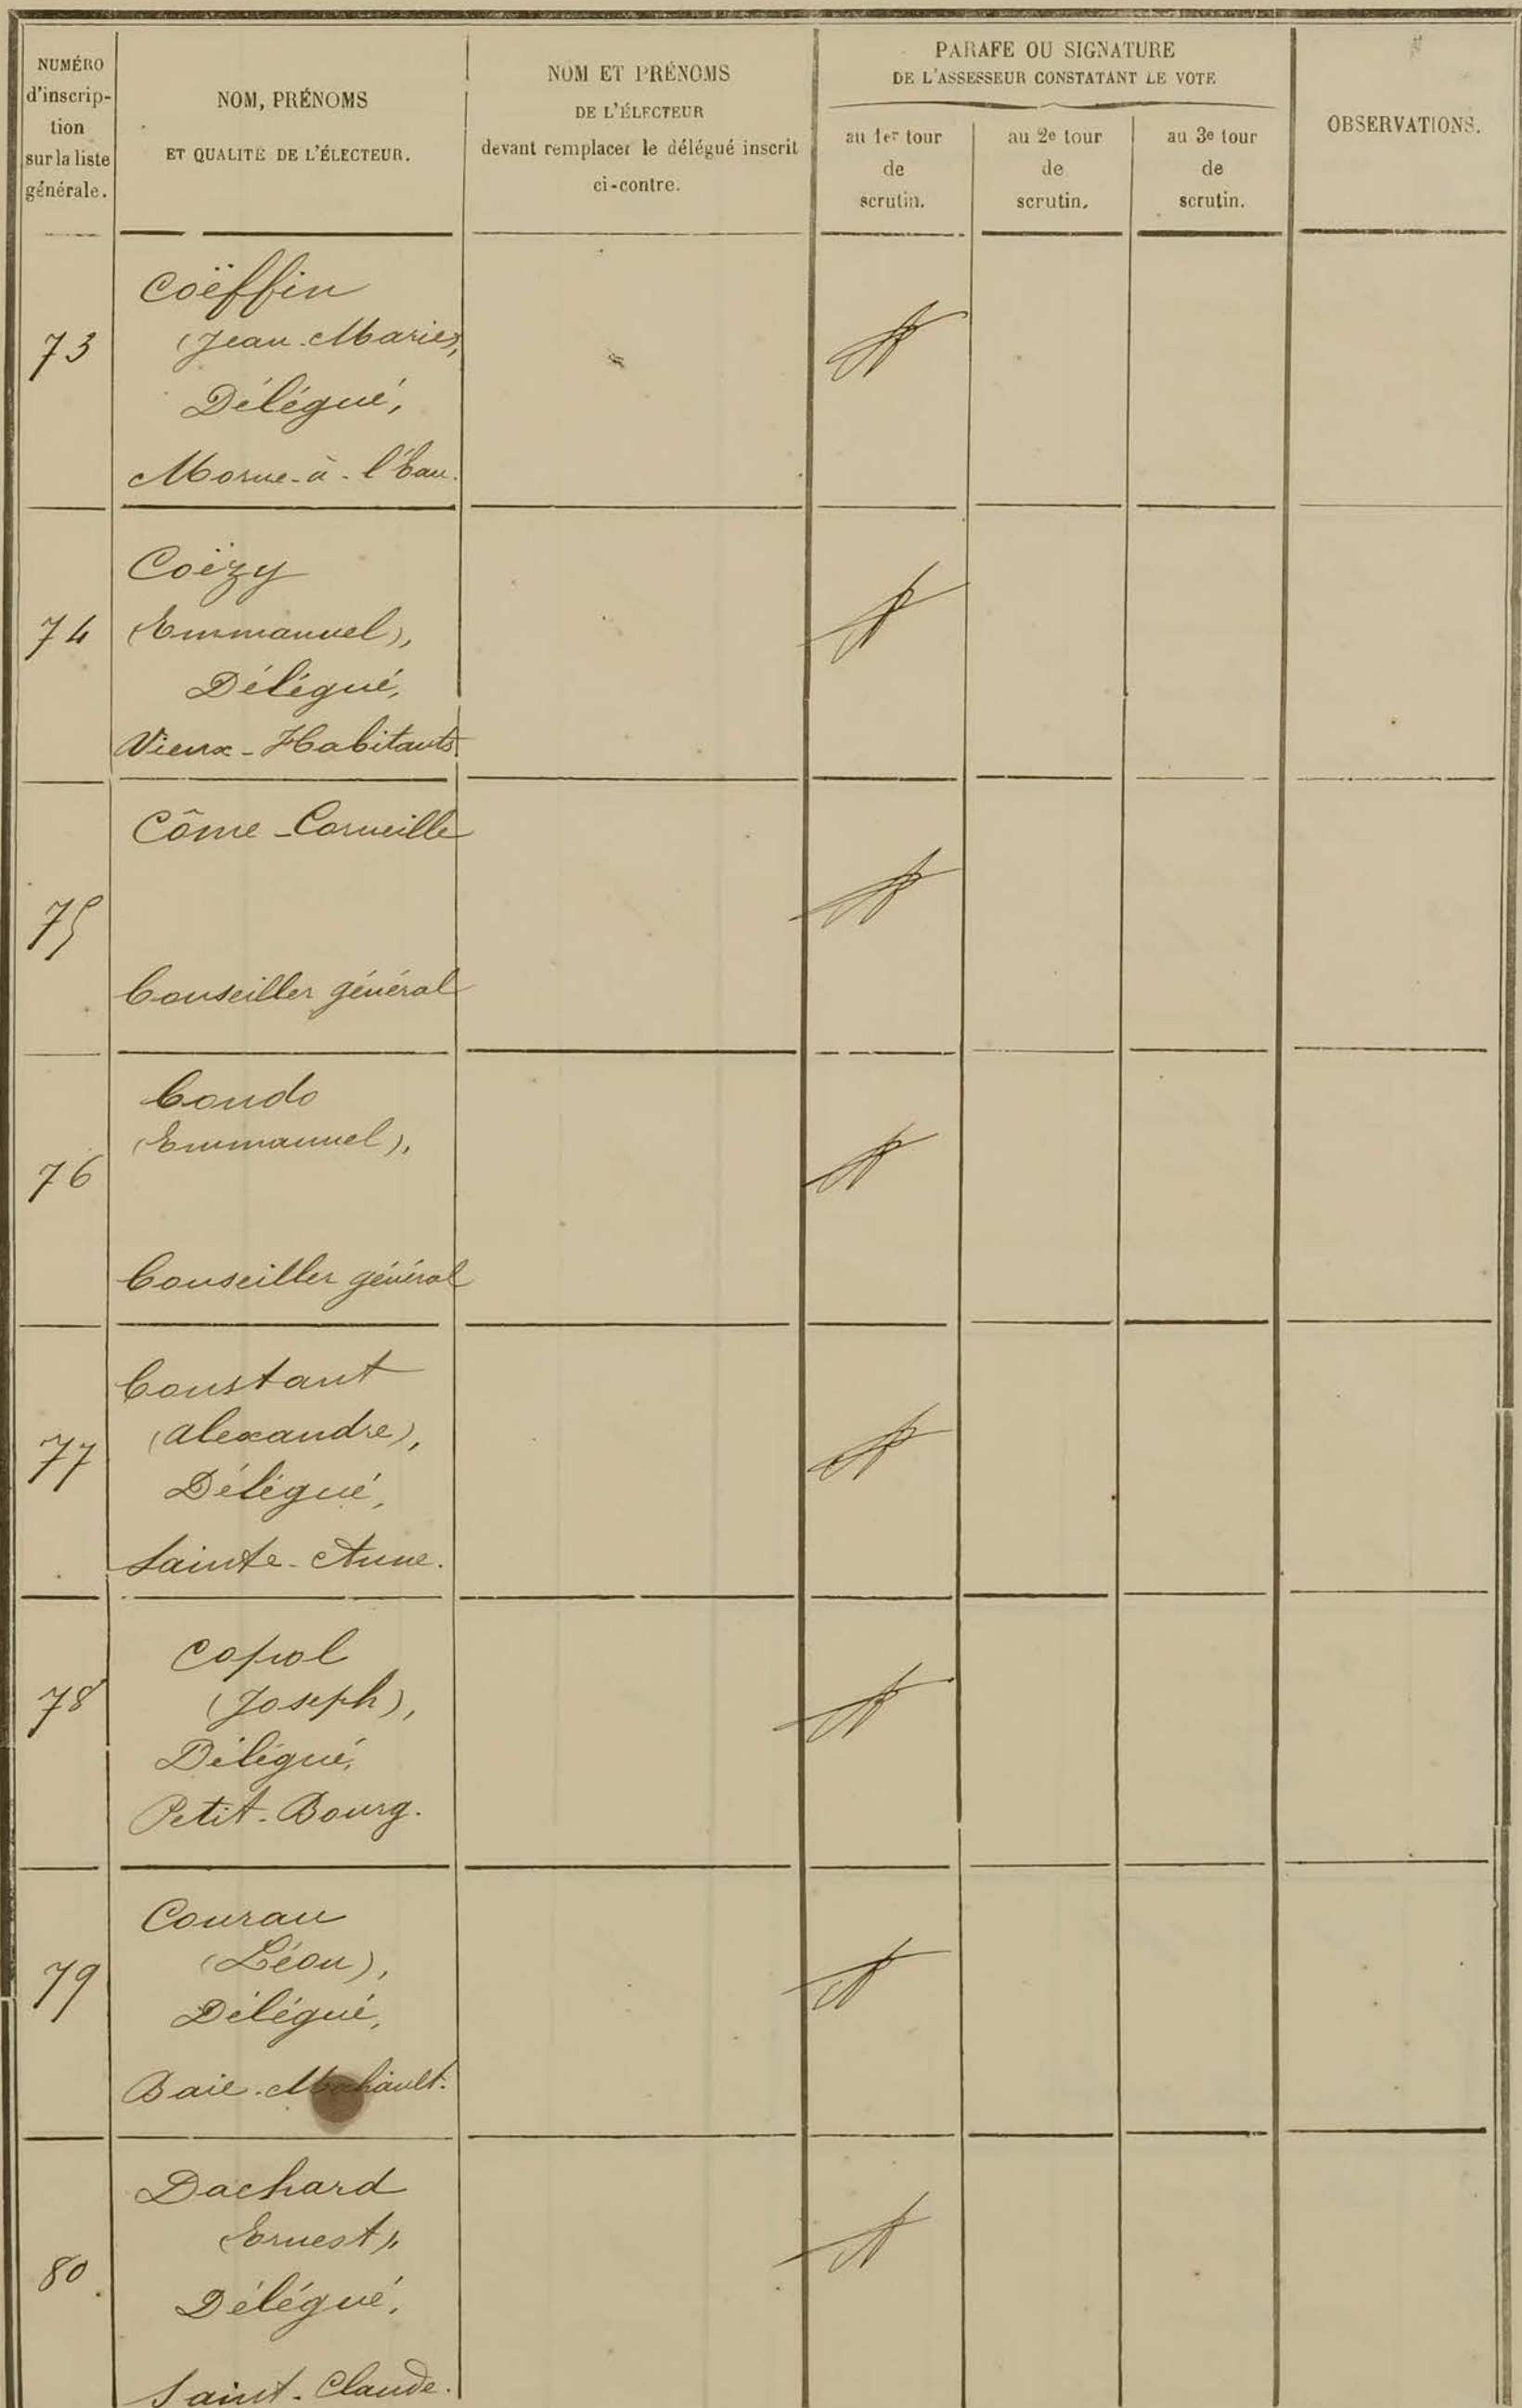 NUMÉRO
d'inscrip-
tion
sur la liste
générale.
NOM, PRÉNOMS
ET QUALITÉ DE L'ÉLECTEUR.
NOM ET PRÉNOMS
DE L'ÉLECTEUR
devant remplacer le délégué inscrit
ci-contre.
PARAFE OU SIGNATURE
DE L'ASSESSEUR CONSTATANT LE VOTE
au 1er tour
de
scrutin.
au 2e tour
de
scrutin.
au 3e tour
de
scrutin.
OBSERVATIONS.
73
Coëffin
(Jean-Marie),
Délégué,
Morne-à-l'Eau.
74
Coëzy
(Emmanuel),
Délégué,
Vieux-Habitants.
75
Côme-Corneille
Conseiller général
76
Condo
(Emmanuel),
Conseiller général
77
Constant
(Alexandre),
Délégué,
Sainte-Anne.
78
Copol
(Joseph),
Délégué,
Petit-Bourg.
79
Courau
(Léon),
Délégué,
Baie-Mahault.
80
Dachard
(Ernest),
Délégué,
Saint-Claude.